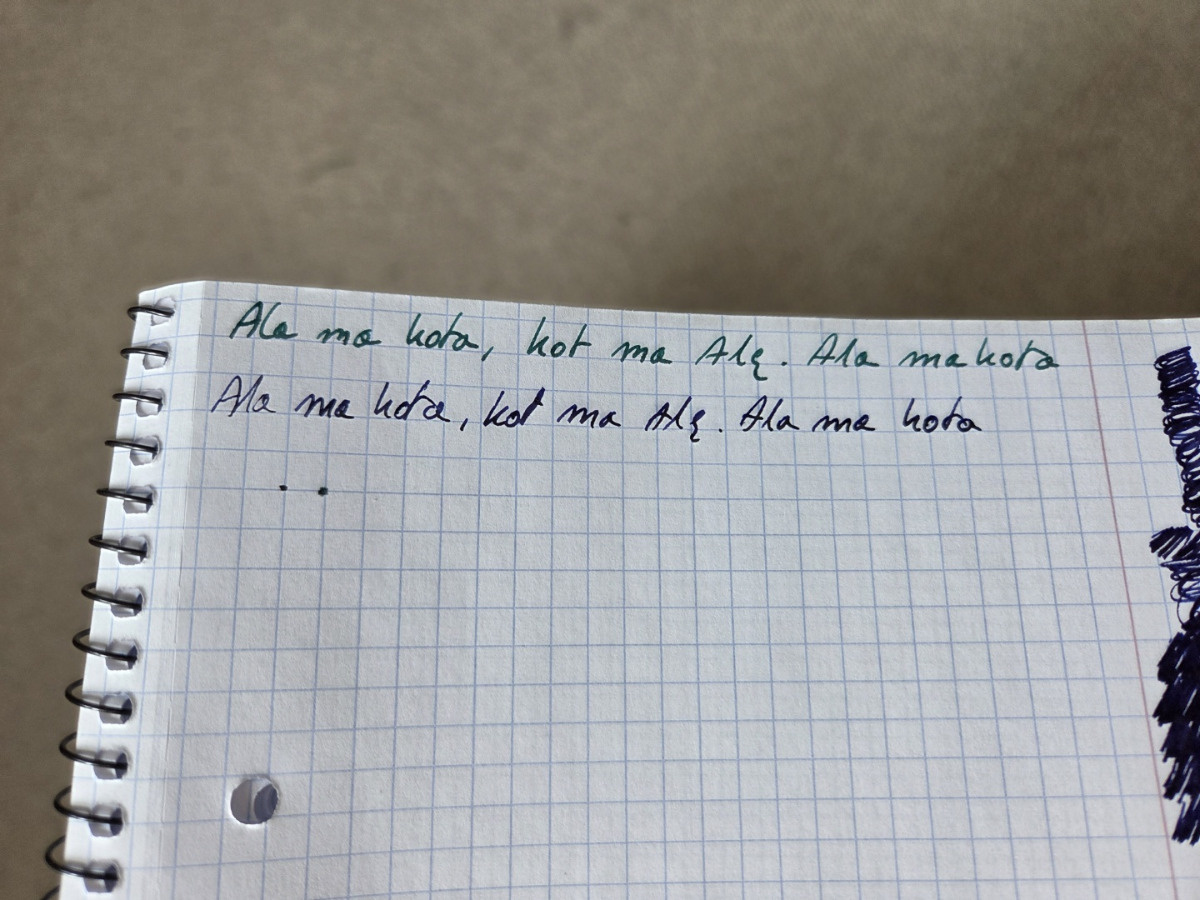 Ala ma kota, kot ma Alę. Ala ma kota
Ala ma kota, kot ma Alę. Ala ma kota